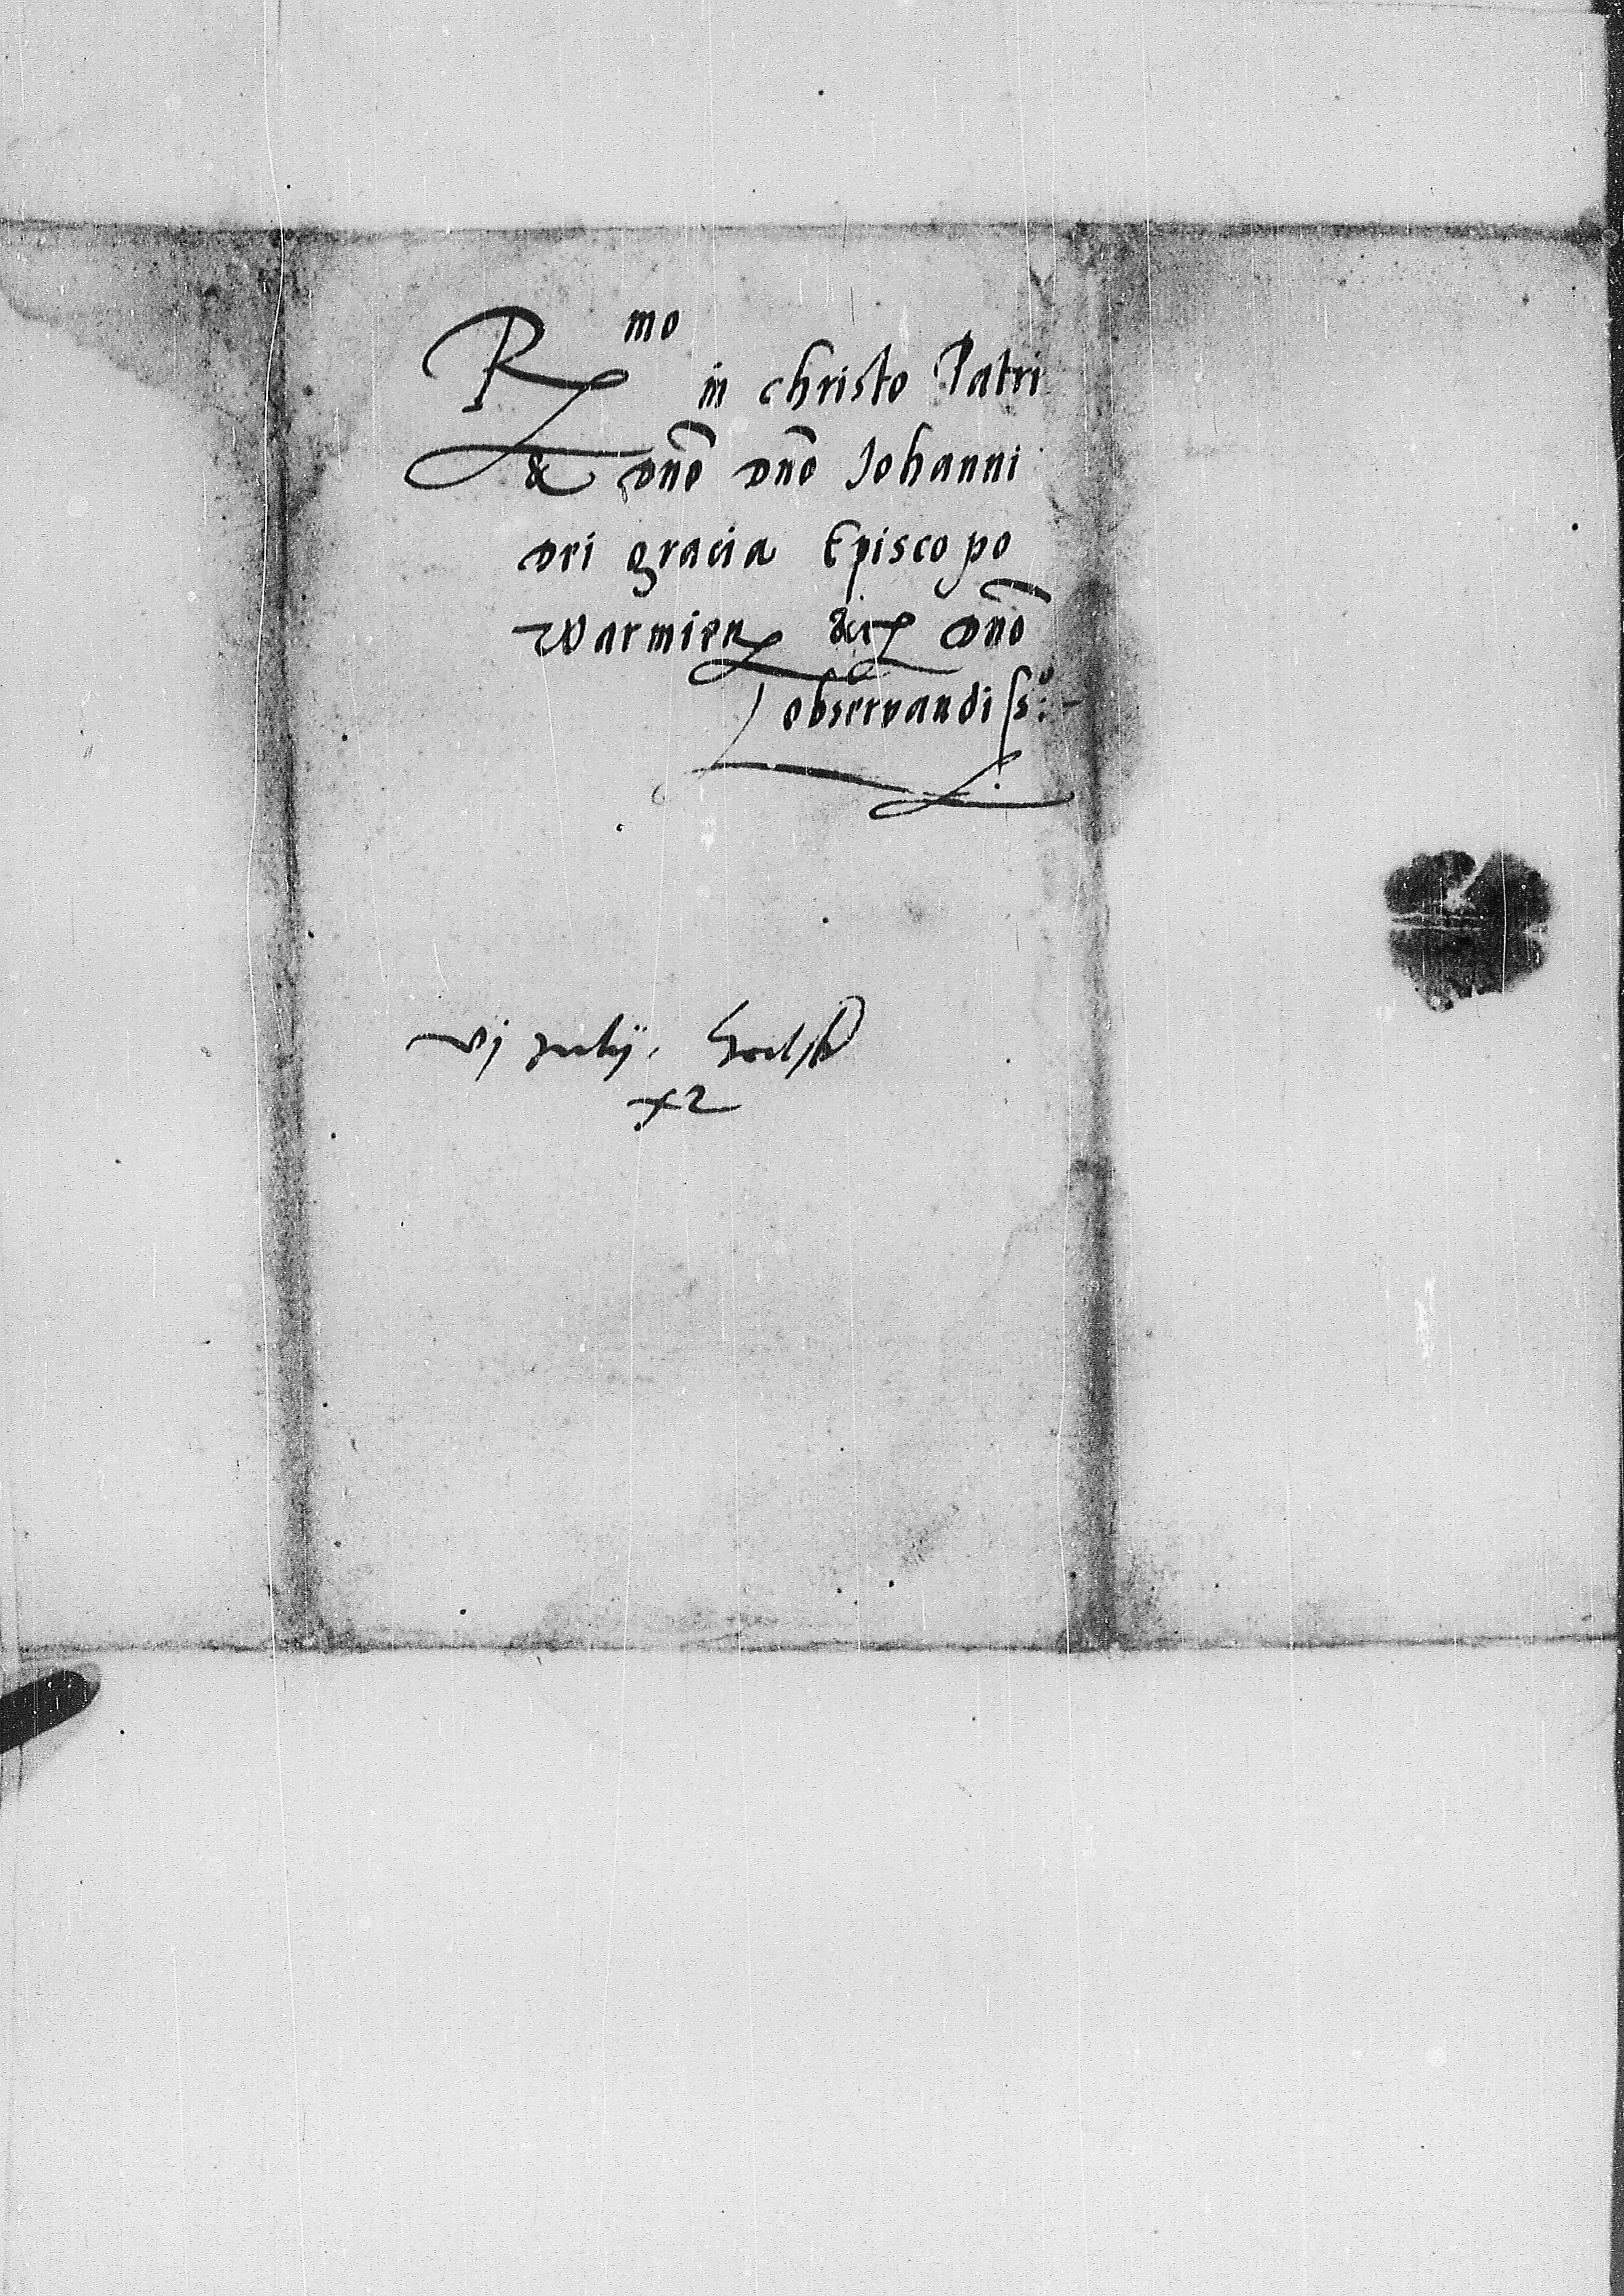 R^mo in christo Patri
& dno dno Iohanni
dei gracia Episcopo
Warmien etc dno
observandiss^o
vj Julij